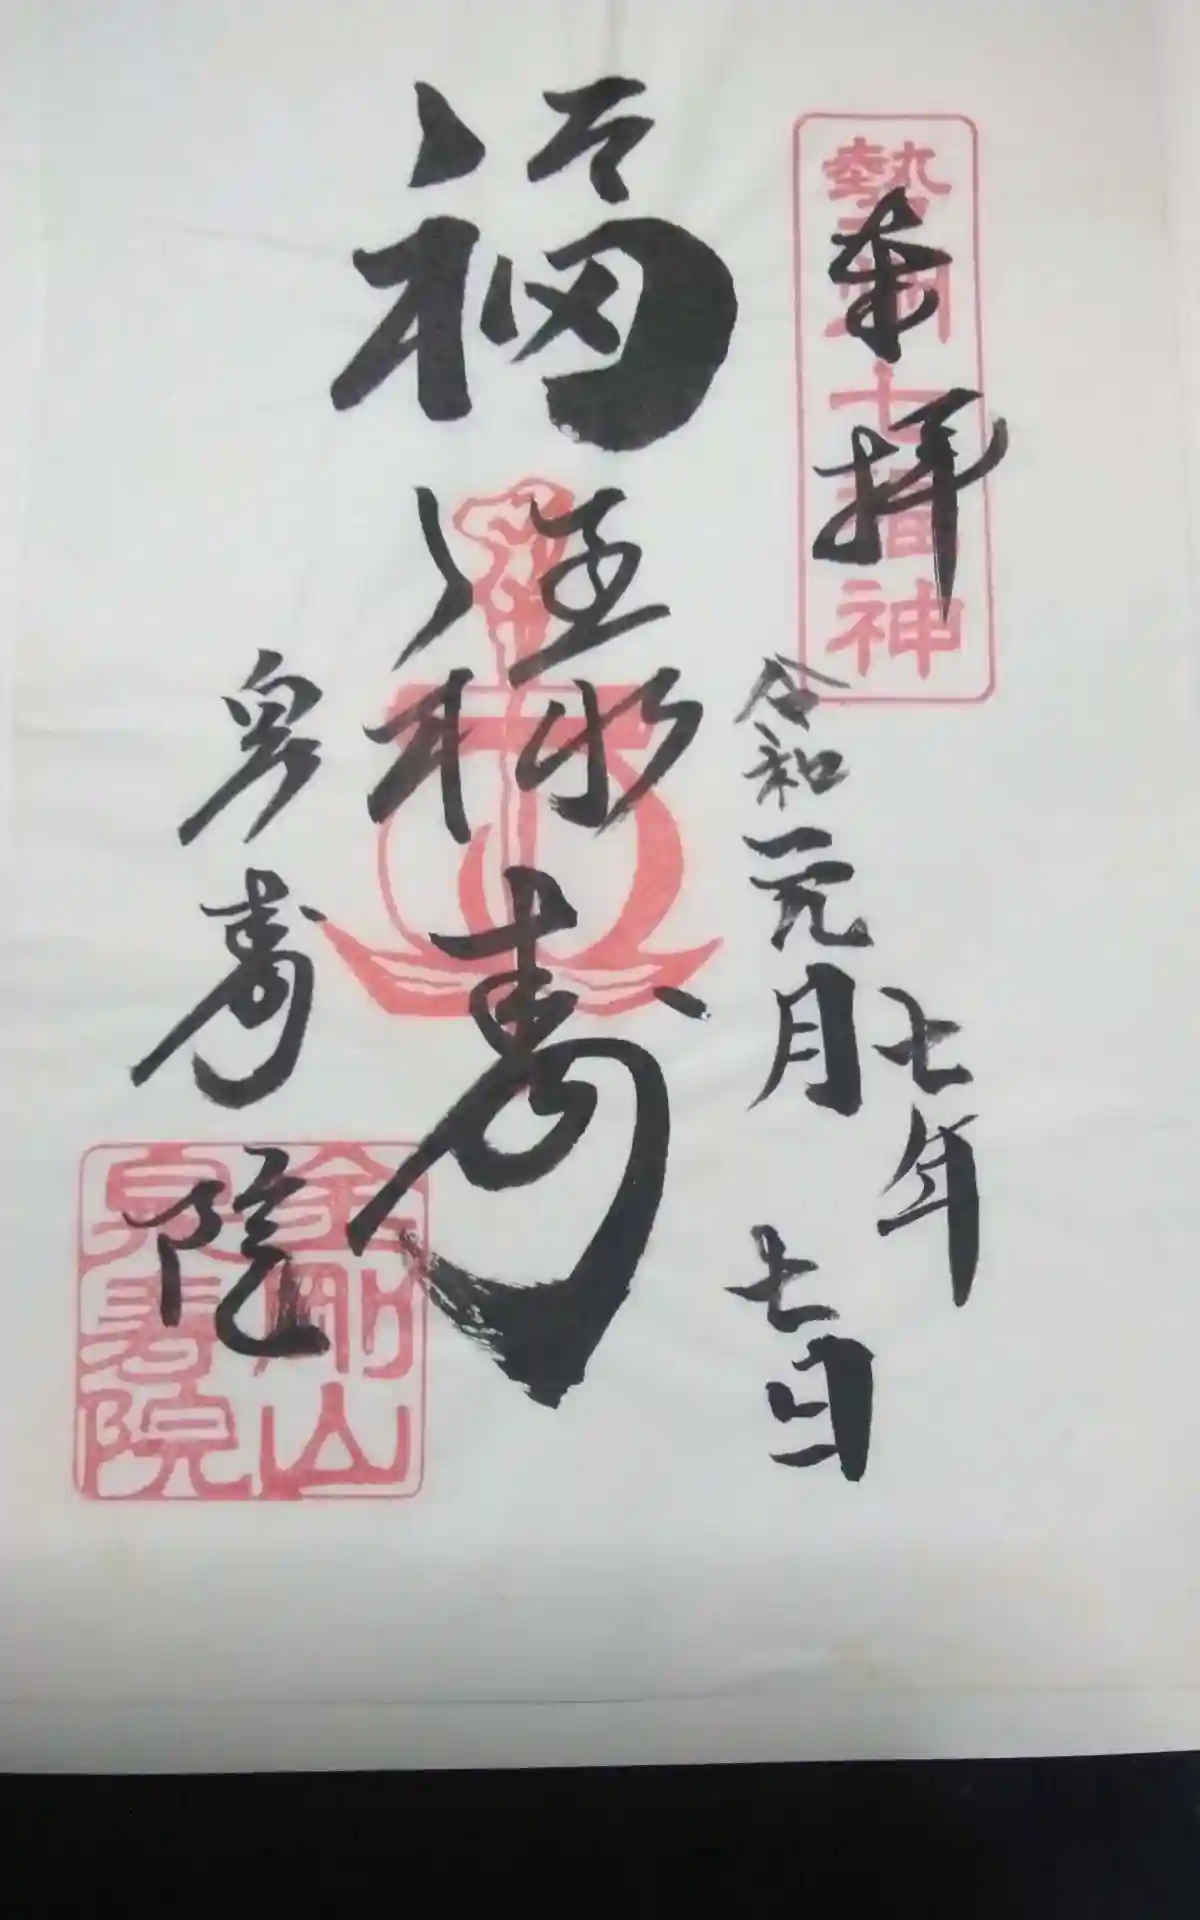 奉拝
勢州七福神
令和七年
元月七日
福禄寿
泉寿院
金剛山
泉壽院